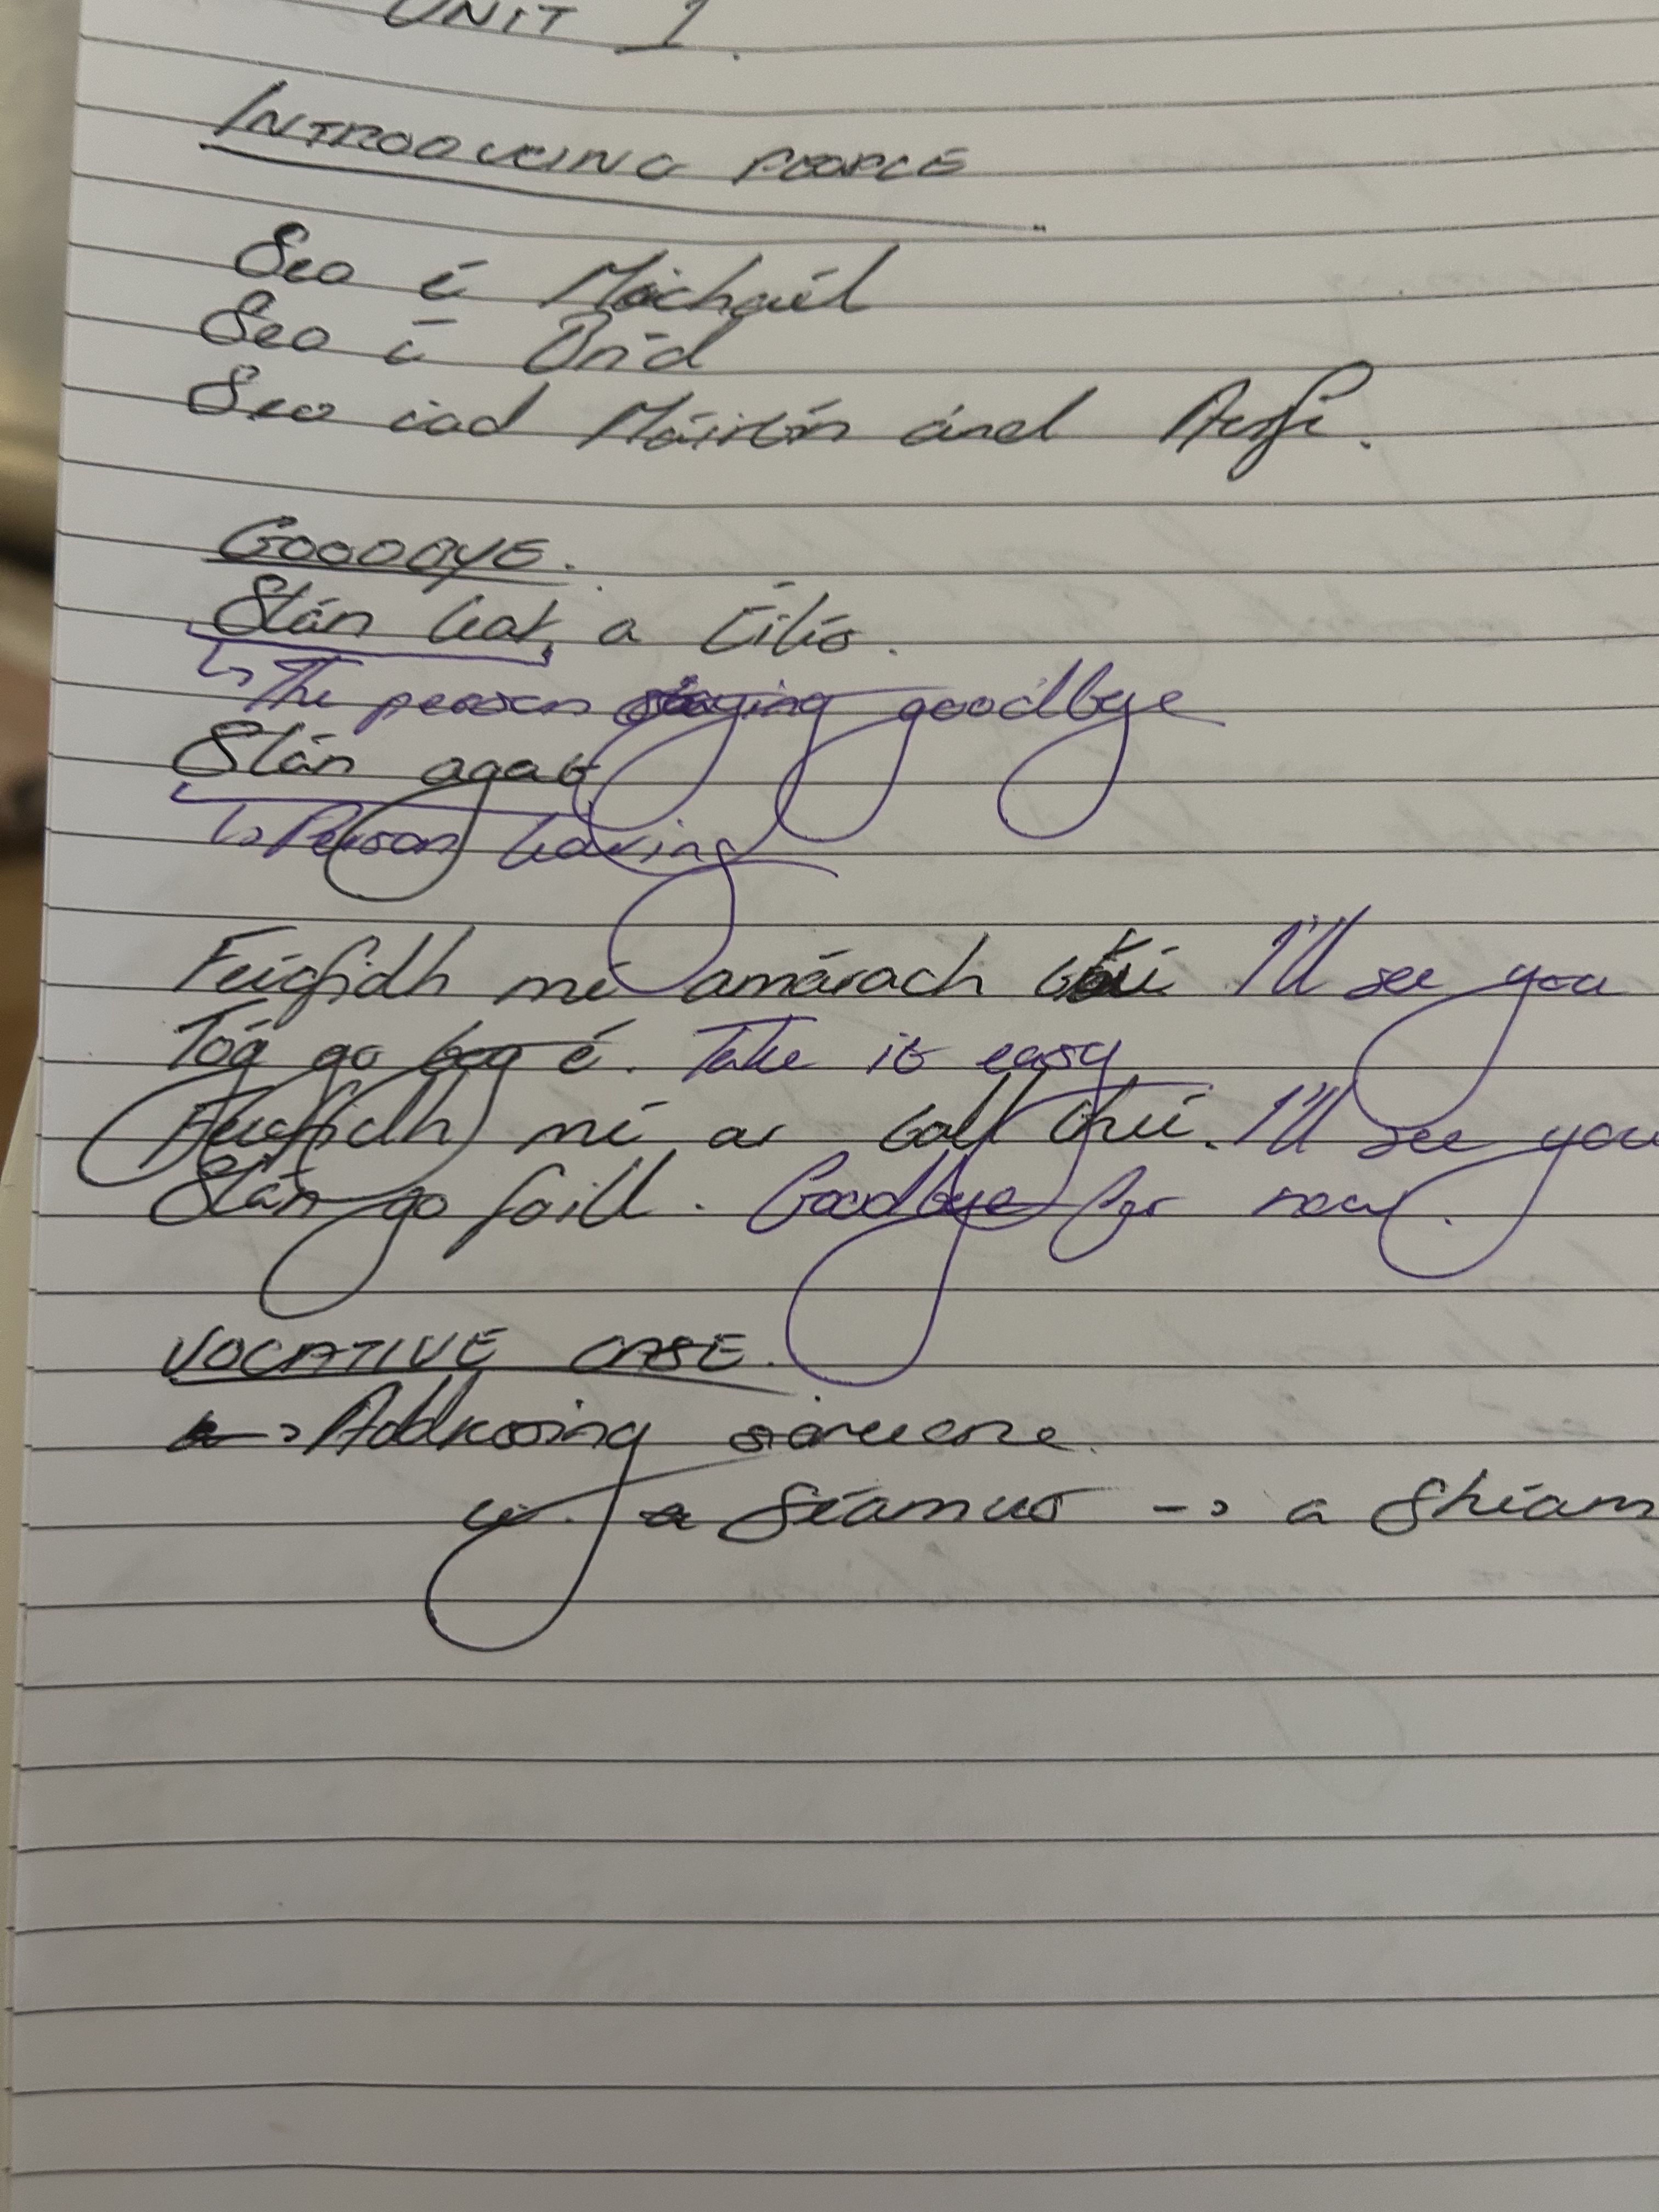 UNIT 1.
INTRODUCING PEOPLE
Seo é Mícháél
Seo í Bríd
Seo iad Máirtín and
GOODBYE.
Slán leat, a Éilís.
↳ The person staying goodbye
Slán agat
↳ Person leaving
Feicfidh mé amárach thú. I'll see you
Tóg go bog é. Take it easy
Feicfidh mé ar ball thú. I'll see you
Slán go foill. Goodbye for now.
VOCATIVE CASE.
-> Addressing someone.
Séamus -> a Shéam